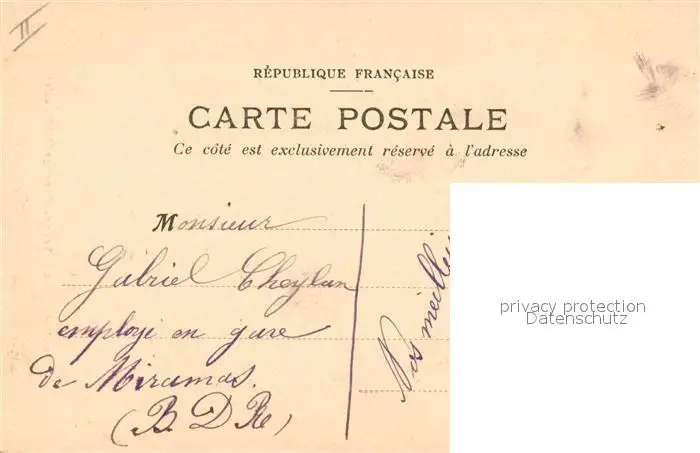 II
RÉPUBLIQUE FRANÇAISE
CARTE POSTALE
Ce côté est exclusivement réservé à l'adresse
Monsieur
Gabriel Cheylan
employé en gare
de Miramas.
(B. D Re)
Nos meilleu
privacy protection
Datenschutz